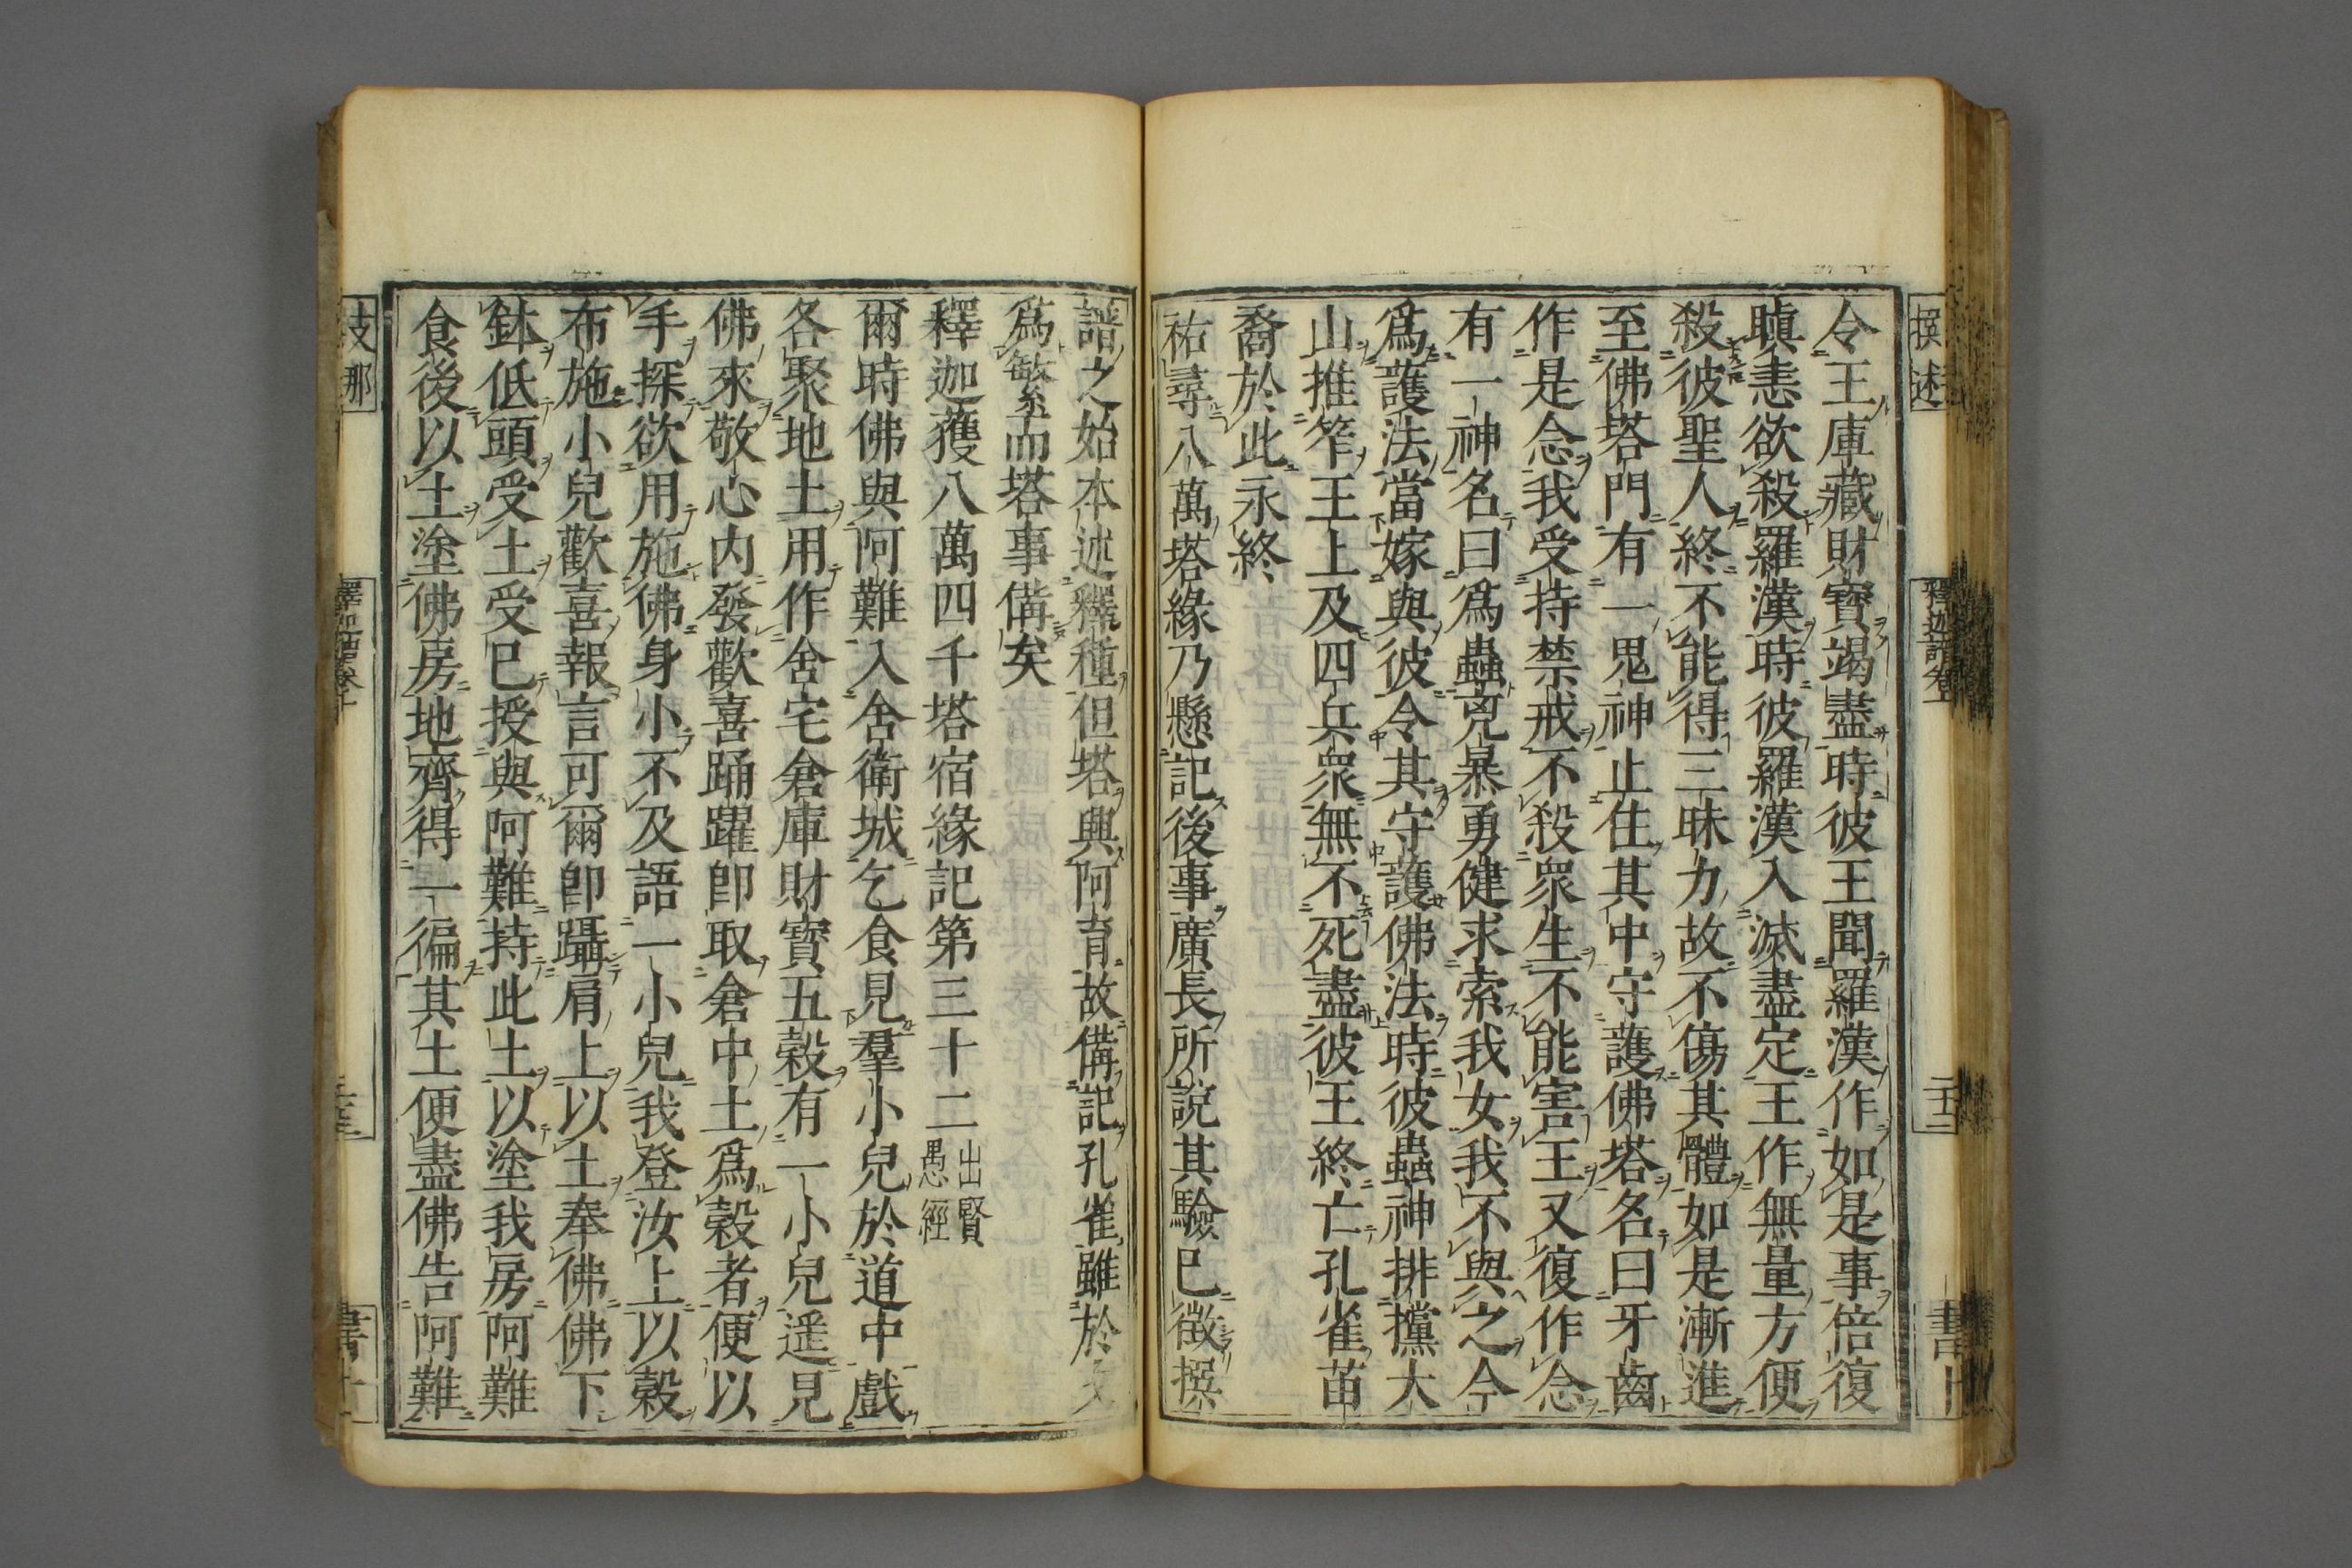 撰述
釋迦譜卷
令王庫藏財寶竭盡時彼王聞羅漢作如是事倍復
瞋恚欲殺羅漢時彼羅漢入滅盡定王作無量方便
殺彼聖人終不能得三昧力故不傷其體如是漸進
至佛塔門有一鬼神止住其中守護佛塔名曰牙齒
作是念我受持禁戒不殺眾生不能害王又復作念
有一神名曰為蟲兇暴勇健求索我女我不與之今
為護法當嫁與彼令其守護佛法時彼蟲神排攩大
山推笮王上及四兵眾無不死盡彼王終亡孔雀苗
裔於此永終
祐尋八萬塔緣乃懸記後事廣長所説其驗已徵撰
譜之始本述釋種但塔興阿育故備記孔雀雖於文
為繁而塔事備矣
釋迦獲八萬四千塔宿緣記第三十二出賢愚經
爾時佛與阿難入舍衛城乞食見羣小兒於道中戲
各聚地土用作舍宅倉庫財寶五穀有一小兒遥見
佛來敬心內發歡喜踊躍即取倉中土為穀者便以
手探欲用施佛身小不及語一小兒我登汝上以穀
布施小兒歡喜報言可爾即躡肩上以土奉佛佛下
鉢低頭受土受已授與阿難持此土以塗我房阿難
食後以土塗佛房地齊得一徧其土便盡佛告阿難
支那